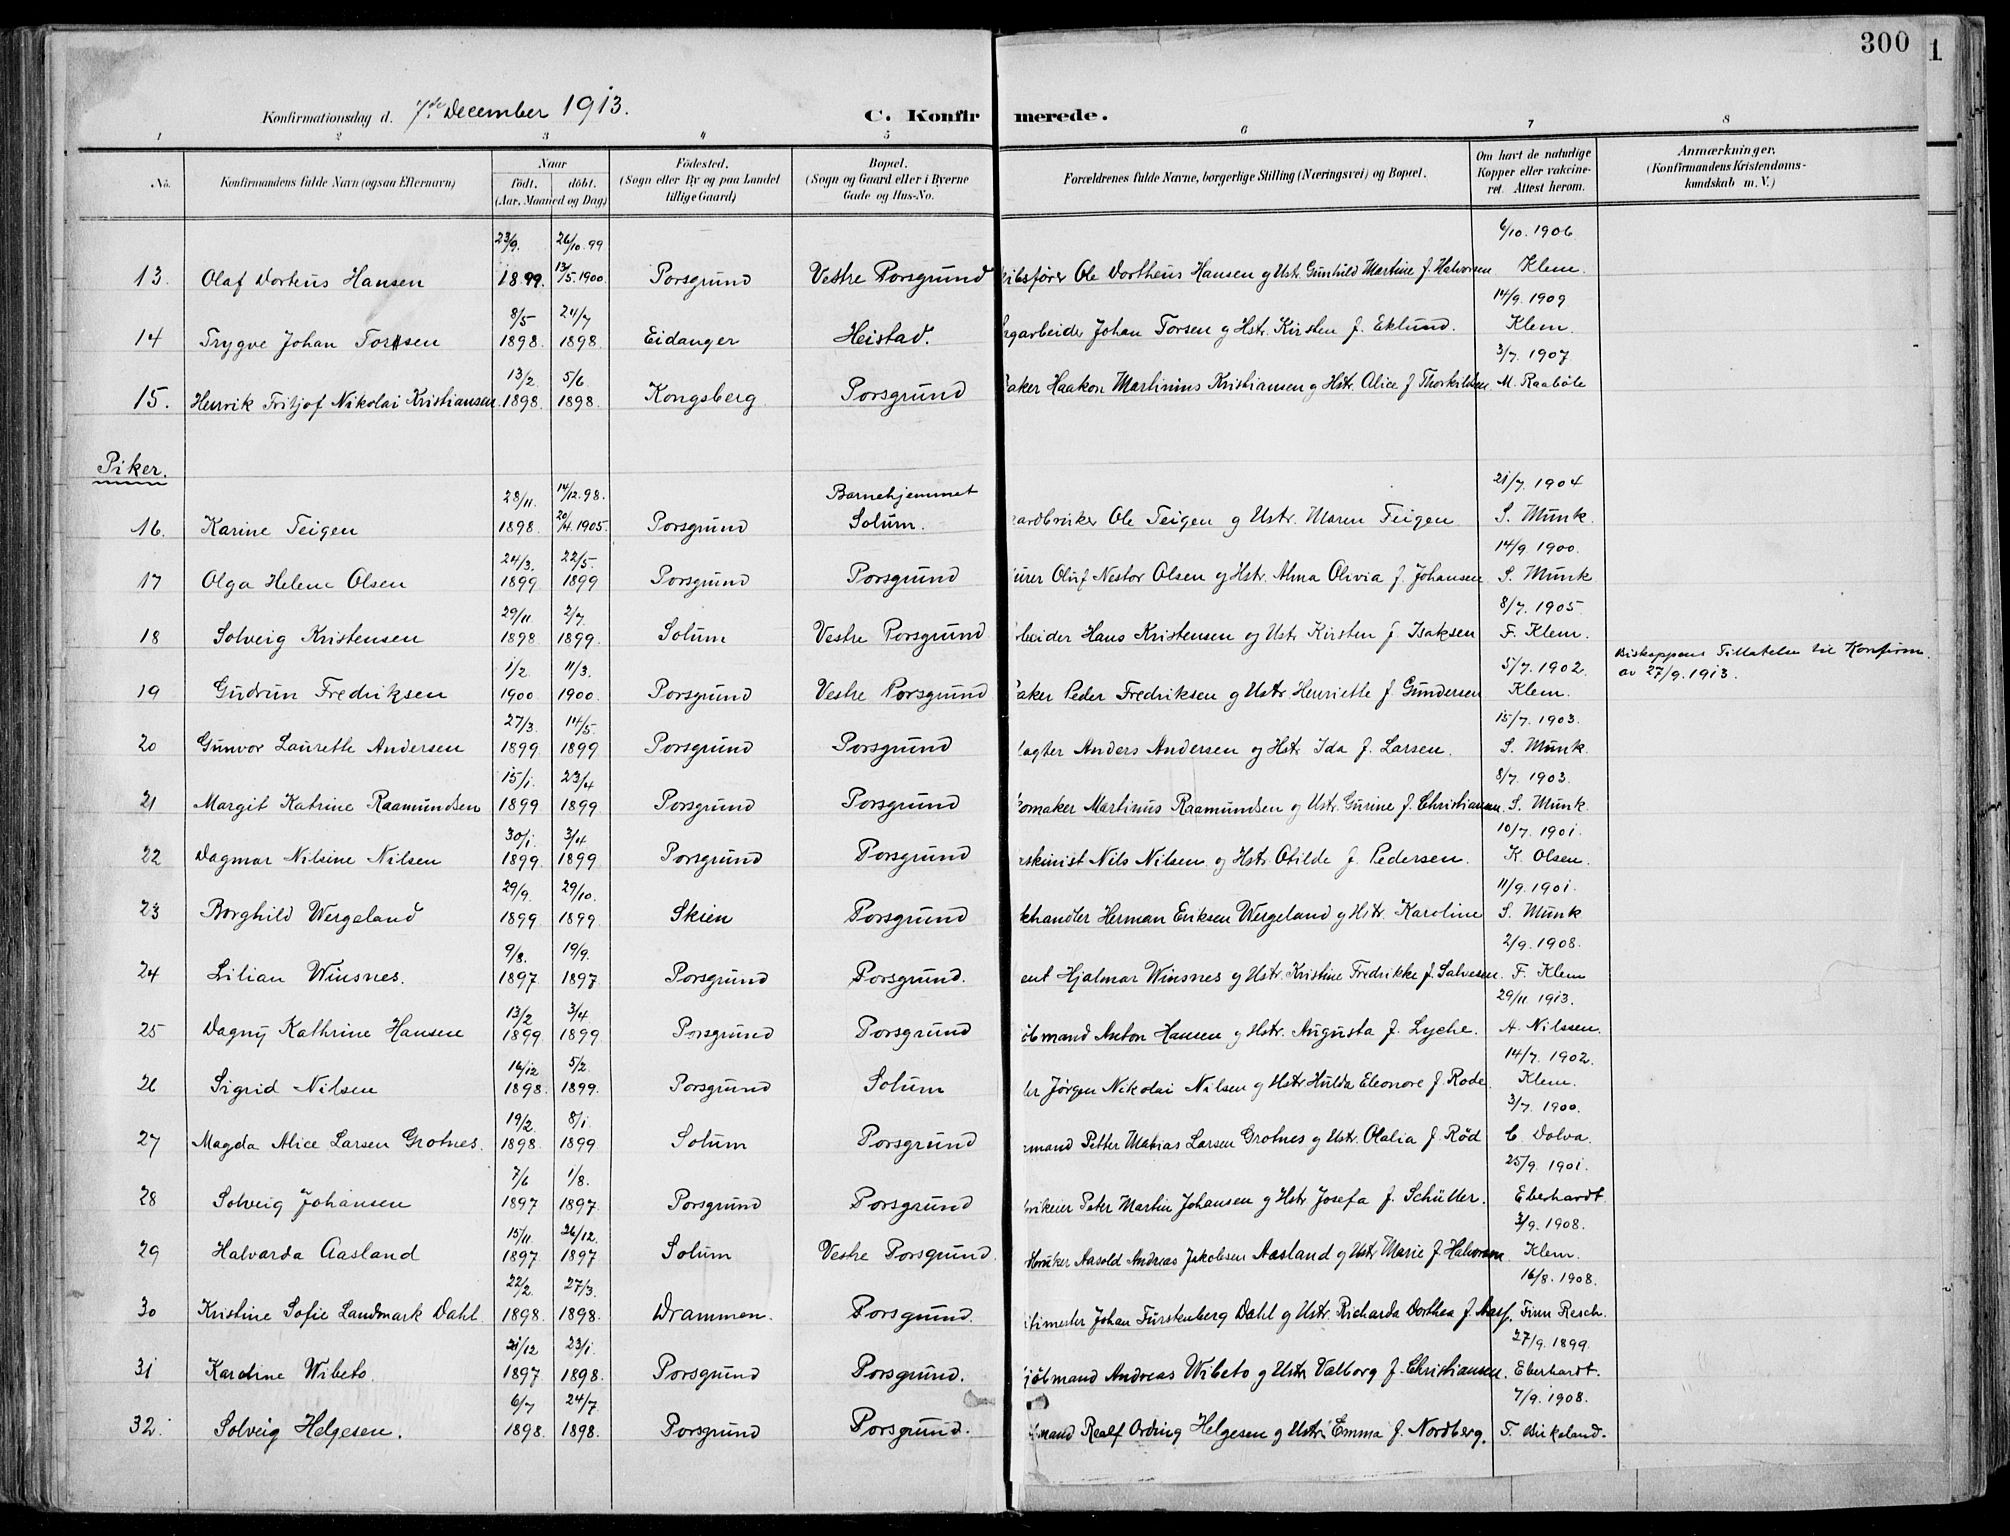 300
1
Konfirmationsdag d. 7de December 1913.
C. Konfirmerede.
1 2 3 4 5 6 7 8
No. Konfirmandens fulde Navn (ogsaa Efternavn) Naar födt. döbt. (Aar, Maaned og Dag) Födested. (Sogn eller By og paa Landet tillige Gaard) Bopæl. (Sogn og Gaard eller i Byerne Gade og Hus-No. Forældrenes fulde Navne, borgerlige Stilling (Næringsvei) og Bopæl. Om havt de naturlige Kopper eller vakcineret. Attest herom. Anmærkninger. (Konfirmandens Kristendomskundskab m. V.)
23/9. 26/10 99 6/10. 1906
13. Olaf Dorteus Hansen 1899. 13/5. 1900 Porsgrund Vestre Porsgrund ibsfører Ole Dortheus Hansen og Ustr. Gunhild Martine f. Halvorsen Klem.
8/5 24/7 14/9. 1909
14 Trygve Johan Torsen 1898. 1898. Eidanger Heistad. garbeider Johan Torsen og Hstr. Kirsten f. Eklund. Klem.
13/2. 5/6. 3/7. 1907
15. Henrik Fritjof Nikolai Kristiansen 1898. 1898. Kongsberg Porsgrund aker Haakon Martinius Kristiansen og Hstr. Alice f Thorkildsen M. Raabøle
Piker.
28/11. 14/12. 98. Barnehjemmet 21/7. 1904
16. Karine Teigen 1898. 20/4. 1905. Porsgrund Solum. aardbruker Ole Teigen og Ustr. Maren Teigen S. Munk.
24/3. 22/5. 14/9. 1900.
17 Olga Helene Olsen 1899 1899 Porsgrund Porsgrund urer Oluf Nestor Olsen og Hstr. Alma Olivia f. Johansen S. Munk
29/11. 2/7. 8/7. 1905.
18 Solveig Kristensen 1898 1899. Solum Vestre Porsgrund beider Hans Kristensen og Ustr Kirsten f Isaksen F. Klem.
1/2. 11/3. 5/7. 1902. Biskoppens Tillatelse til Konfirm.
19 Gudrun Fredriksen 1900 1900. Porsgrund Vestre Porsgrund aker Peder Fredriksen og Ustr. Henriette f. Gundersen Klem. av 27/9. 1913.
27/3. 14/5. 15/7. 1903.
20 Gunvor Laurette Andersen 1899 1899 Porsgrund Porsgrund lagter Anders Andersen og Hstr Ida f. Larsen. S. Munk.
15/1. 23/4 8/7. 1903.
21 Margit Katrine Raamundsen 1899 1899 Porsgrund Porsgrund komaker Martinus Raamundsen og Ustr. Gurine f. Christiansen. S. Munk.
30/1. 3/4 10/7. 1901.
22 Dagmar Nilsine Nilsen 1899. 1899. Porsgrund Porsgrund skinist Nils Nilsen og Hstr. Otilde f. Pedersen. K. Olsen.
29/9. 29/10. 11/9. 1901.
23 Borghild Wergeland 1899 1899 Skien Porsgrund khandler Herman Eriksen Wergeland og Hstr. Karoline S. Munk
9/8. 19/9. 2/9. 1908.
24 Lilian Winsnes. 1897 1897. Porsgrund Porsgrund. ent Hjalmar Winsnes og Ustr. Kristine Fredrikke f. Salvesen. F. Klem
13/2 3/4 29/11 1913.
25 Dagny Kathrine Hansen 1899 1899. Porsgrund Porsgrund øbmand Anton Hansen og Hstr. Augusta f. Lyche. A. Nilssen.
16/12 5/2. 14/7. 1902.
26 Sigrid Nilsen 1898. 1899. Porsgrund Solum er Jørgen Nikolai Nilsen og Hstr Hulda Eleonore f. Rode. Klem.
19/2. 8/1. 3/7. 1900.
27 Magda Alice Larsen Grotnes. 1898. 1899 Solum Porsgrund mand Petter Mathias Larsen Grotnes og Ustr. Olalia f. Rød C. Dolva.
7/6 1/8. 25/9. 1901.
28 Solveig Johansen 1897 1897. Porsgrund Porsgrund rikeier Peter Martin Johansen og Hstr Josefa f. Schüller. Eberhardt.
15/11. 26/12. 3/9. 1908.
29 Halvarda Aasland 1897 1897 Solum Vestre Porsgrund. dbruker Aasold Andreas Jakobsen Aasland og Ustr Marie f. Halvorsen. Klem.
22/2. 27/3. 16/8. 1908.
30 Kristine Sofie Landmark Dahl. 1898. 1898. Drammen. Porsgrund. timester Johan Fürstenberg Dahl og Ustr. Richarda Dorthea f. Aars. Finn Resch.
21/12 23/1. 27/9. 1899.
31 Karoline Wibeto. 1897 1898. Porsgrund Porsgrund. jøbmand Andreas Wibeto og Ustr Valborg f. Christiansen. Eberhardt.
6/7 24/7. 7/9. 1908.
32. Solveig Helgesen. 1898. 1898. Porsgrund Porsgrund. mand Realf Ording Helgesen og Ustr Emma f. Nordberg. T. Birkeland.